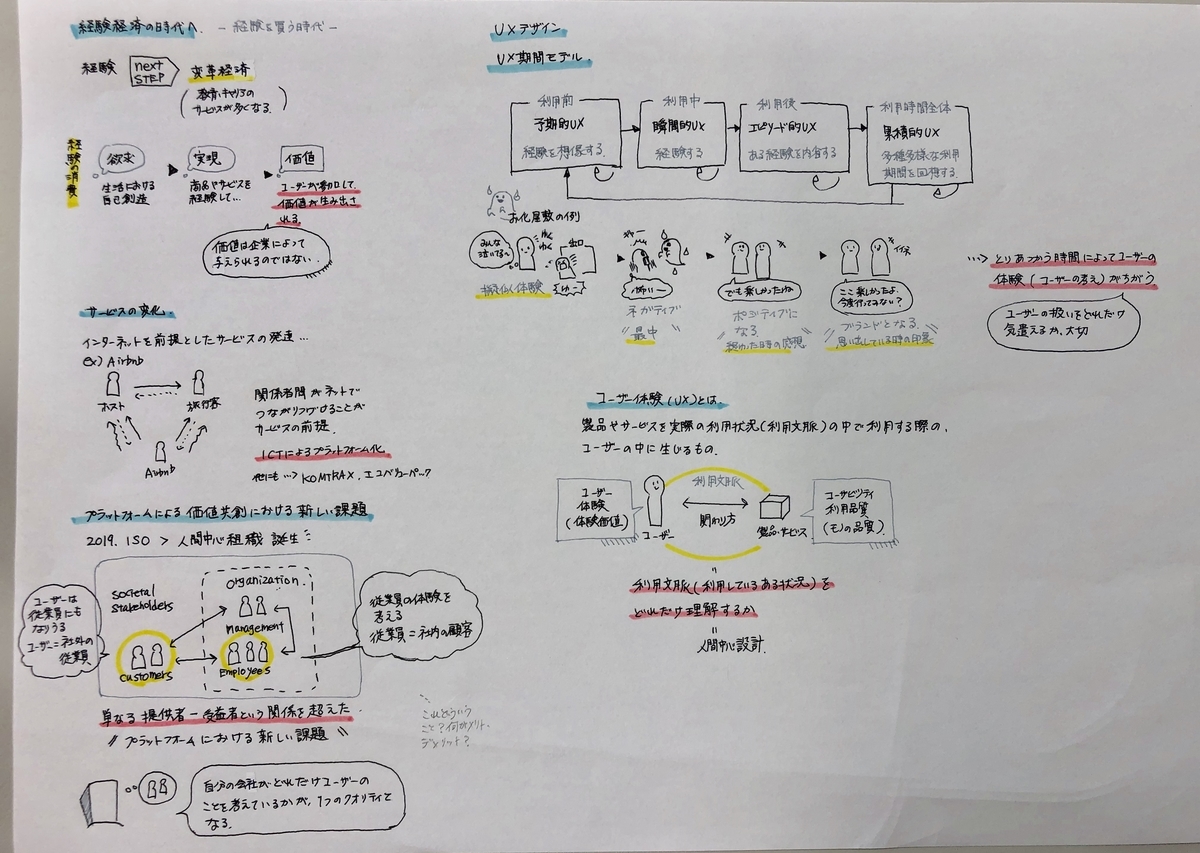 経験経済の時代へ. - 経験を買う時代 -
経験
next
STEP
変革経済
教育、キャリアの
サービスが多くなる.
経験の消費
欲求
実現
価値
生活における
自己創造
商品やサービスを
経験して…
ユーザーが参加して、
価値が生み出さ
れる
価値は企業によって
与えられるのではない.
サービスの変化.
インターネットを前提としたサービスの発達…
ex) Airbnb
ホスト
旅行客
Airbnb
関係者間がネットで
つながりつづけることが
サービスの前提.
ICTによるプラットフォーム化
他にも…> KOMTRAX,
プラットフォームによる価値共創における新しい課題
2019. ISO > 人間中心組織 誕生
societal
stakeholders
organization
management
Employees
customers
ユーザーは
従業員にも
なりうる
ユーザー=社外の
従業員
従業員の体験を
考える
従業員=社内の顧客
単なる提供者-受益者という関係を超えた
〃プラットフォームにおける新しい課題〃
これどういう
こと?何がメリット、
デメリット?
自分の会社がどれだけユーザーの
ことを考えているかが、1つのクオリティと
なる.
UXデザイン
UX期間モデル.
利用前
予期的UX
経験を想像する.
利用中
瞬間的UX
経験する
利用後
エピソード的UX
ある経験を内省する
利用時間全体
累積的UX
多種多様な利用
期間を回想する
お化屋敷の例
みんな
泣いてる〜
わく
わく
出口
擬似体験
怖いー
ネガティブ
〃最中〃
でも楽しかったね
ポジティブに
なる.
終わった時の感想
ここ楽しかったよ.
今度行ってみない?
イイネ
ブランドとなる.
思い出している時の印象
…> とりあつかう時間によってユーザーの
体験(ユーザーの考え)がちがう.
ユーザーの扱いをどれだけ
気遣えるか、大切
ユーザー体験(UX)とは.
製品やサービスを実際の利用状況(利用文脈)の中で利用する際の、
ユーザーの中に生じるもの.
ユーザー
体験
(体験価値)
ユーザー
利用文脈
関わり方
製品・サービス
ユーザビリティ
利用品質
(モノの品質).
利用文脈(利用しているある状況)を
どれだけ理解するか
〃
人間中心設計.